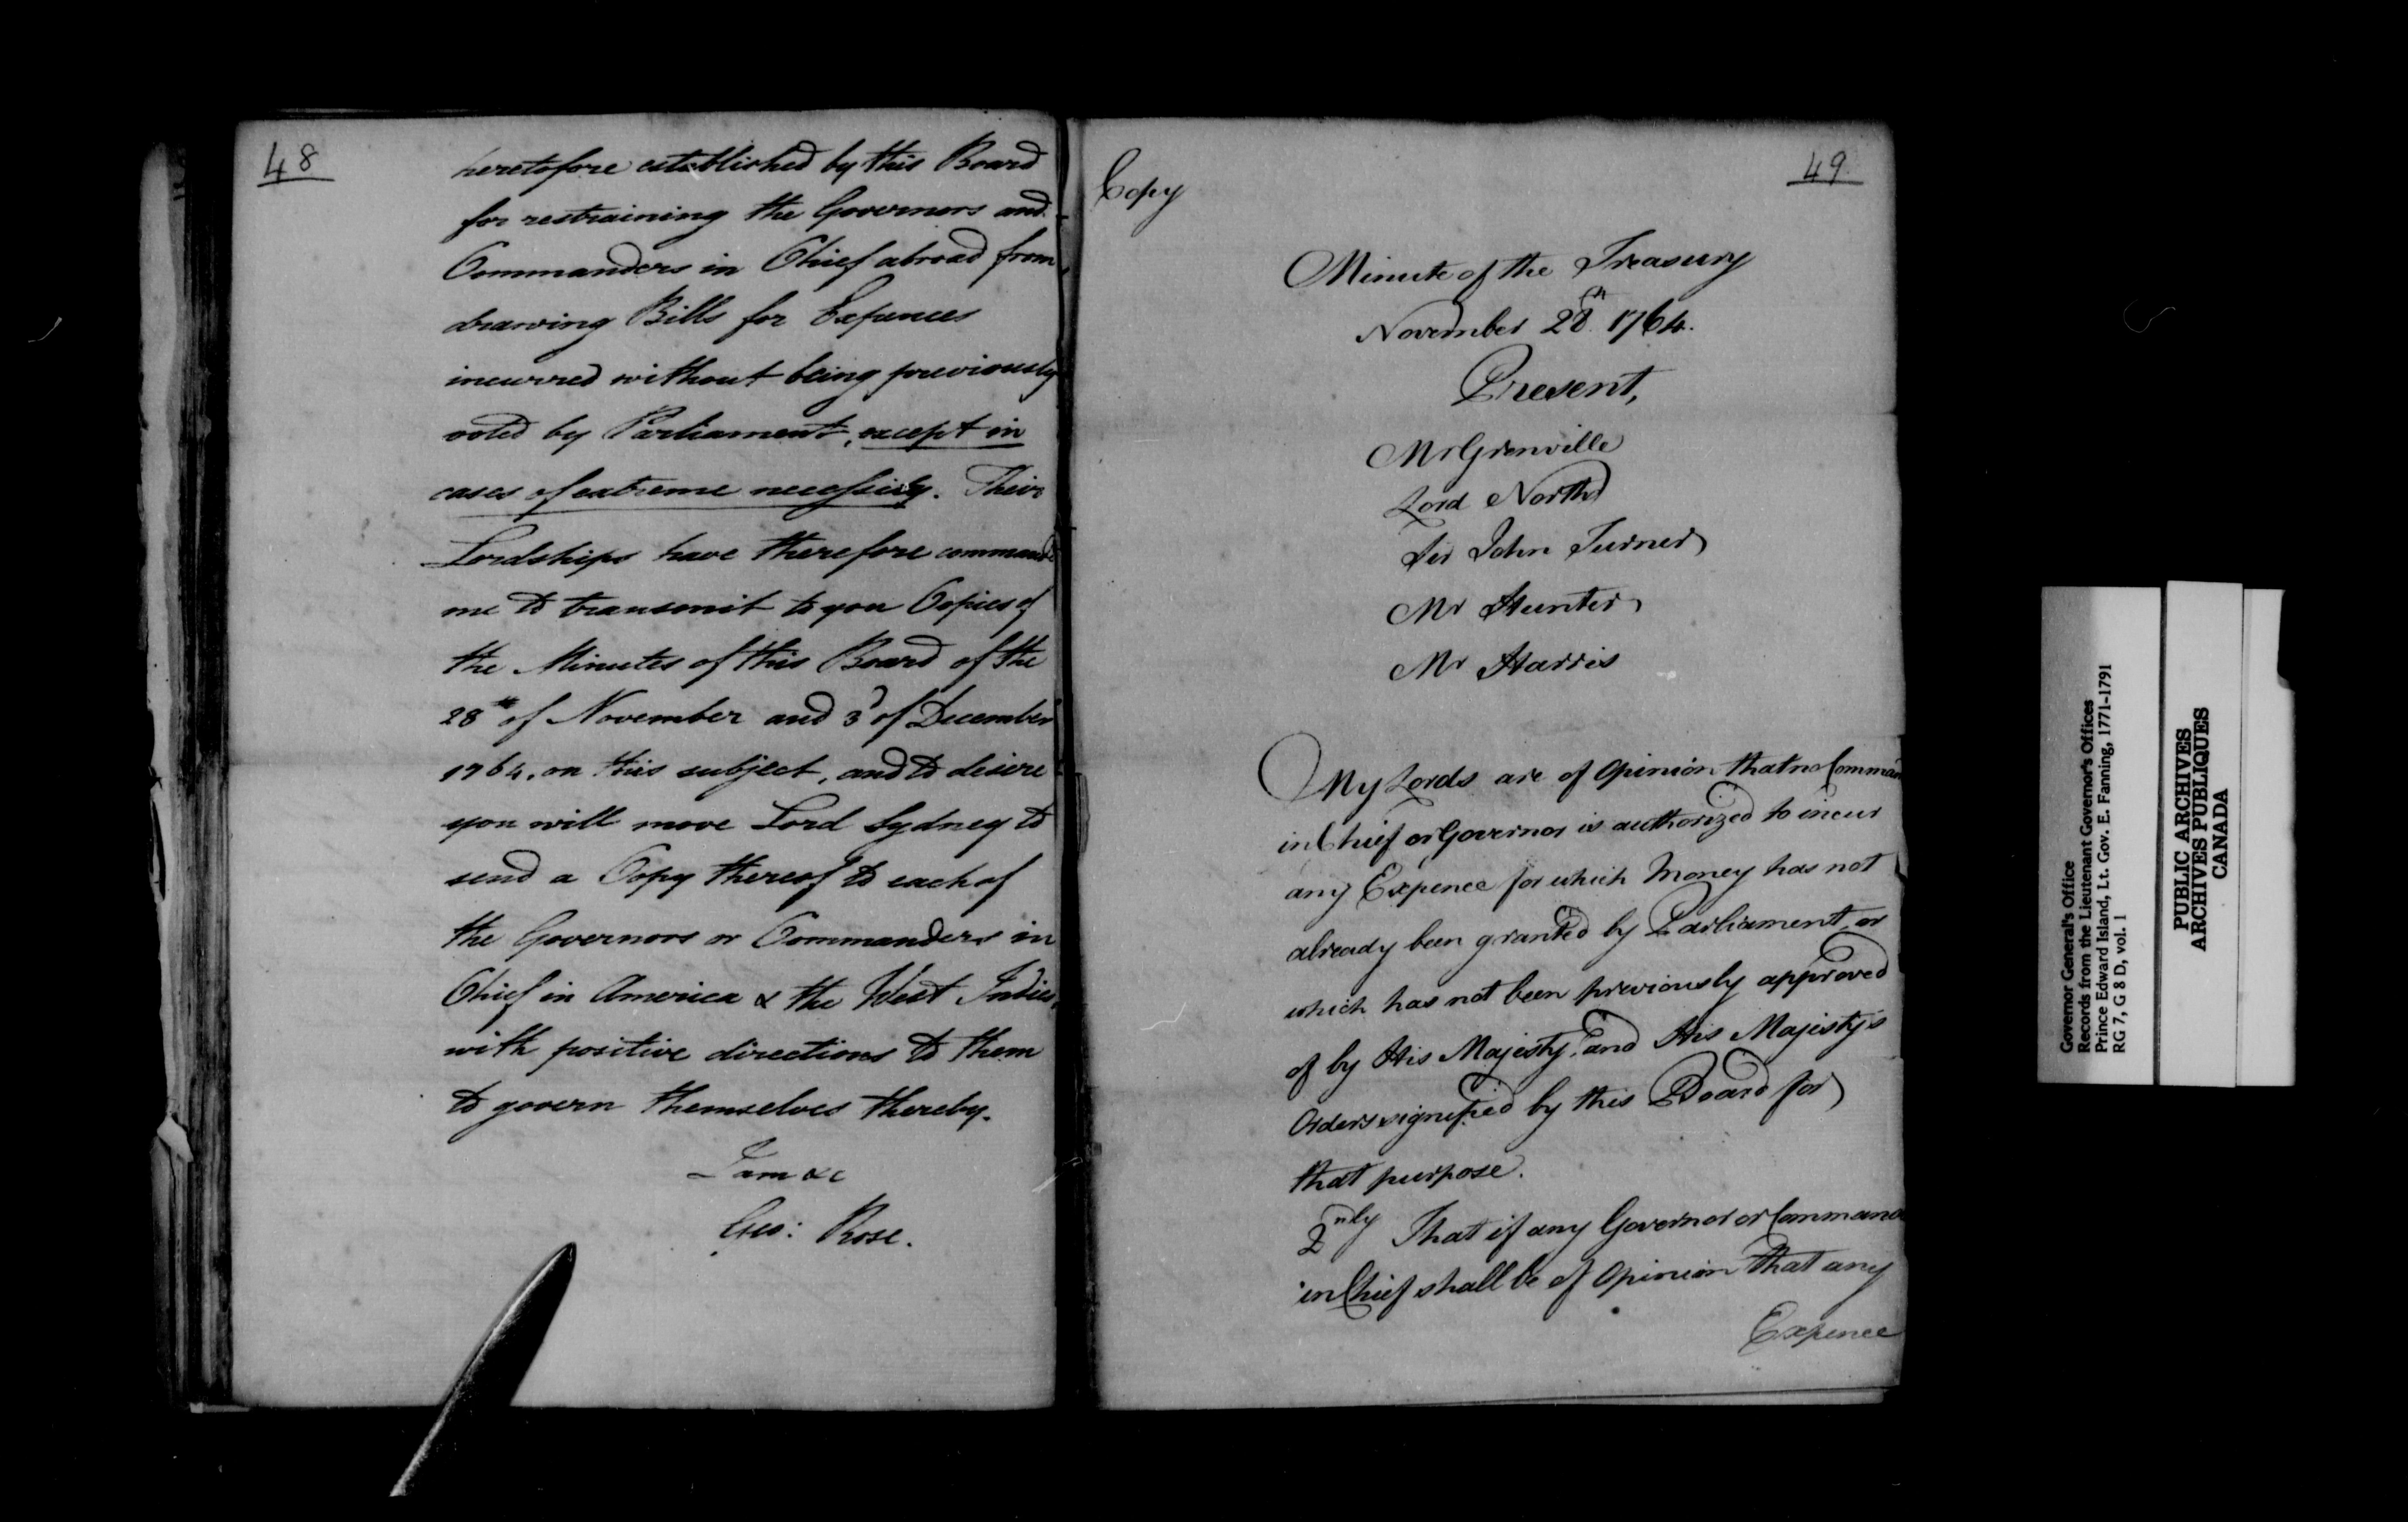 48
heretofore established by this Board
for restraining the Governors and
Commanders in Chief abroad from
drawing Bills for Expences
incurred without being previously
voted by Parliament, except in
cases of extreme necessity. Their
Lordships have therefore commande
me to transmit to you Copies of
the Minutes of this Board of the
28th of November and 3d of December
1764, on this subject, and to desire
you will move Lord Sydney to
send a Copy thereof to each of
the Governors or Commanders in
Chief in America & the West Indies,
with positive directions to them
to govern themselves thereby.
I am &c
Geo: Rose.
49
Copy
Minute of the Treasury
November 28th 1764.
Present,
Mr Grenville
Lord North
Sir John Turner
Mr Hunter
Mr Harris
My Lords are of Opinion that no Comman
in Chief or Governor is authorized to incur
any Expence for which Money has not
already been granted by Parliament, or
which has not been previously approved
of by His Majesty, and His Majesty's
Orders signified by this Board for
that purpose.
2nly That if any Governor or Comman
in Chief shall be of Opinion that any
Expence
Governor General's Office
Records from the Lieutenant Governor's Offices
Prince Edward Island, Lt. Gov. E. Fanning, 1771-1791
RG 7, G 8 D, vol. 1
PUBLIC ARCHIVES
ARCHIVES PUBLIQUES
CANADA